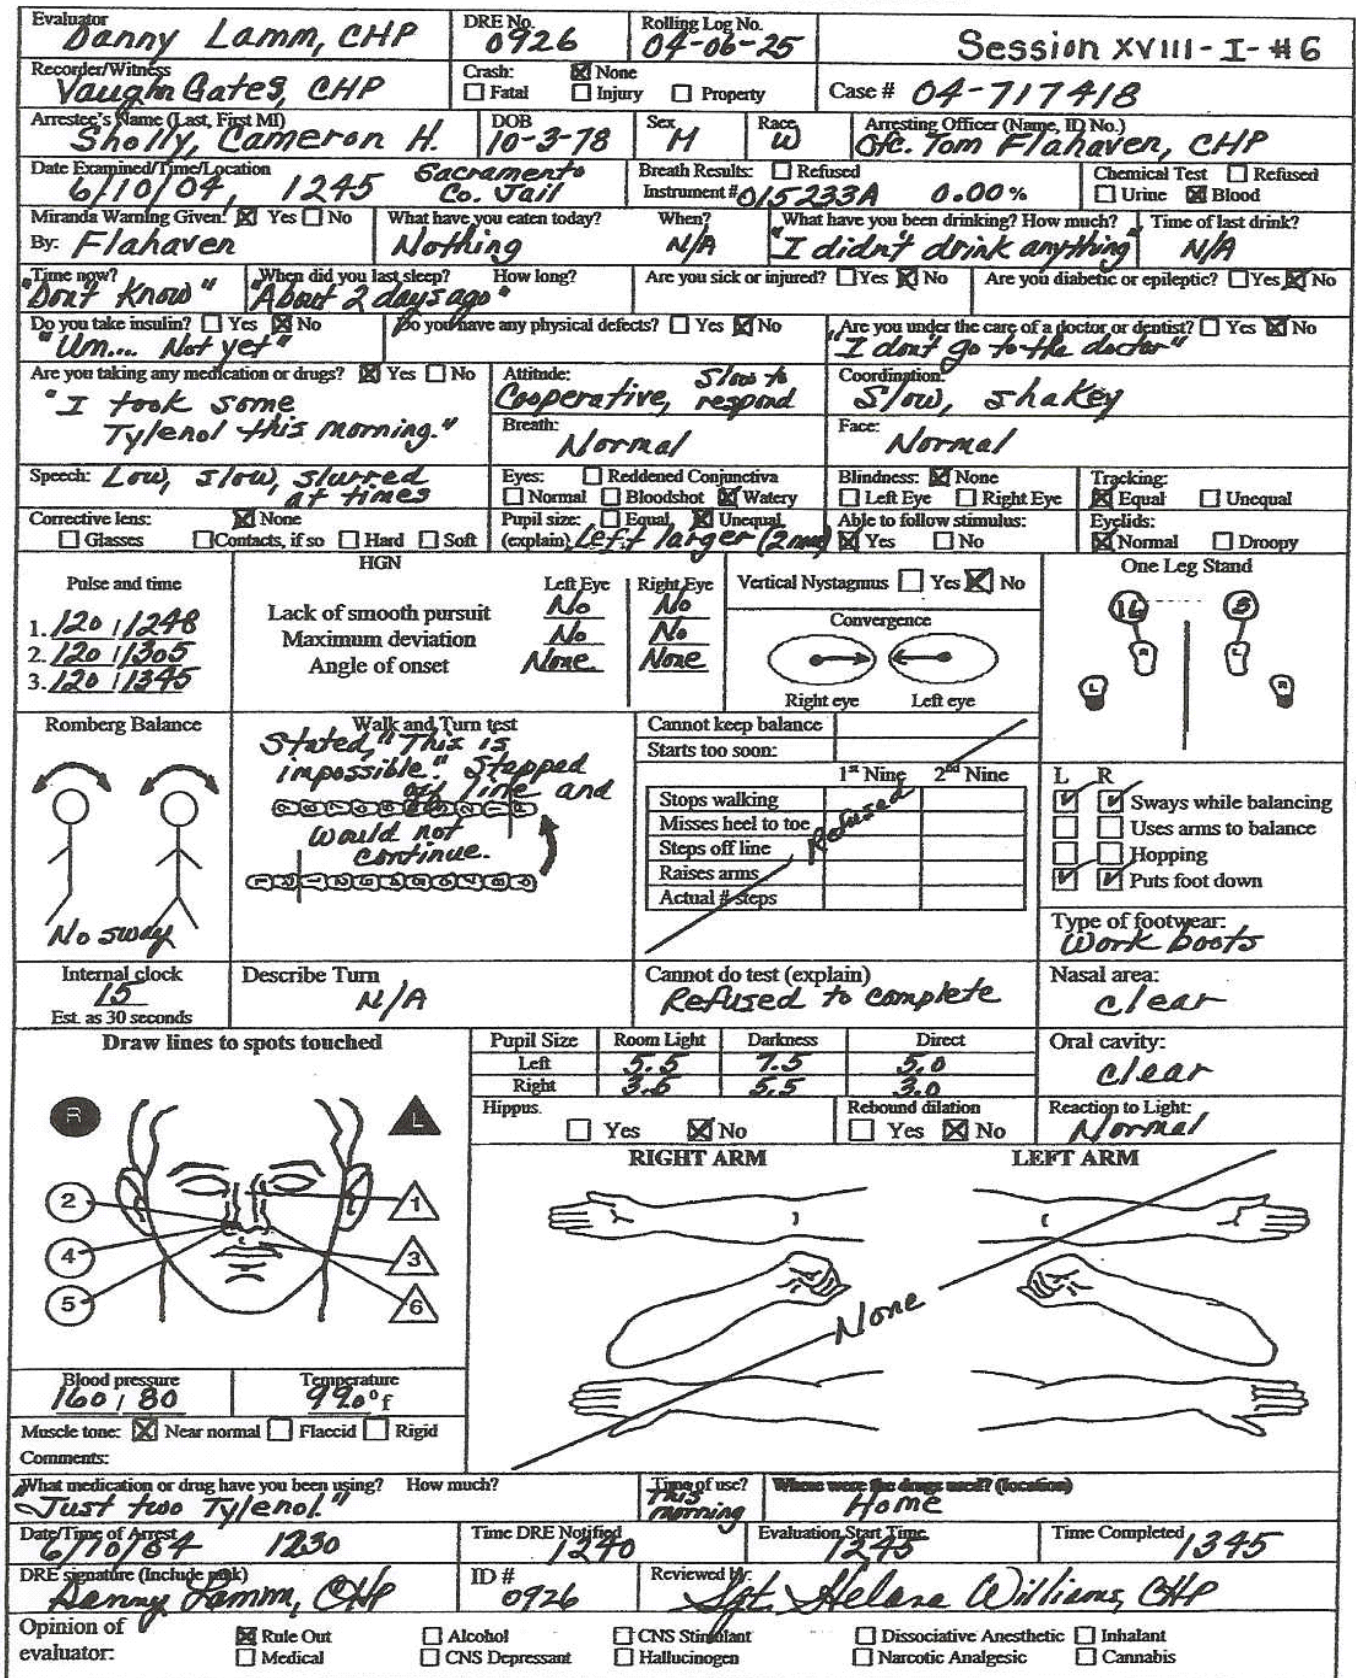 Evaluator
Danny Lamm, CHP
DRE No.
0926
Rolling Log No.
04-06-25
Session XVIII-I-#6
Recorder/Witness
Vaughn Gates, CHP
Crash: ☒ None
☐ Fatal ☐ Injury ☐ Property
Case # 04-717418
Arrestee's Name (Last, First MI)
Sholly, Cameron H.
DOB
10-3-78
Sex
M
Race
W
Arresting Officer (Name, ID No.)
Ofc. Tom Flahaven, CHP
Date Examined/Time/Location
6/10/04, 1245 Sacramento Co. Jail
Breath Results: ☐ Refused
Instrument # 015233A 0.00%
Chemical Test ☐ Refused
☐ Urine ☒ Blood
Miranda Warning Given: ☒ Yes ☐ No
By: Flahaven
What have you eaten today? When?
Nothing N/A
What have you been drinking? How much?
"I didn't drink anything"
Time of last drink?
N/A
Time now?
"Don't Know"
When did you last sleep? How long?
"About 2 days ago"
Are you sick or injured? ☐ Yes ☒ No
Are you diabetic or epileptic? ☐ Yes ☒ No
Do you take insulin? ☐ Yes ☒ No
"Um.... Not yet"
Do you have any physical defects? ☐ Yes ☒ No
Are you under the care of a doctor or dentist? ☐ Yes ☒ No
"I don't go to the doctor"
Are you taking any medication or drugs? ☒ Yes ☐ No
"I took some
Tylenol this morning."
Attitude:
Cooperative, slow to respond
Coordination:
Slow, shakey
Breath:
Normal
Face:
Normal
Speech: Low, slow, slurred
at times
Eyes: ☐ Reddened Conjunctiva
☐ Normal ☐ Bloodshot ☒ Watery
Blindness: ☒ None
☐ Left Eye ☐ Right Eye
Tracking:
☒ Equal ☐ Unequal
Corrective lens: ☒ None
☐ Glasses ☐ Contacts, if so ☐ Hard ☐ Soft
Pupil size: ☐ Equal ☒ Unequal
(explain) Left larger (2mm)
Able to follow stimulus:
☒ Yes ☐ No
Eyelids:
☒ Normal ☐ Droopy
Pulse and time
1. 120 / 1248
2. 120 / 1305
3. 120 / 1345
HGN
Left Eye Right Eye
Lack of smooth pursuit No No
Maximum deviation No No
Angle of onset None None
Vertical Nystagmus ☐ Yes ☒ No
Convergence
Right eye Left eye
One Leg Stand
16 3
R L
L R
Romberg Balance
No sway
Walk and Turn test
Stated, "This is
impossible". Stepped
off line and
would not
continue.
Cannot keep balance
Starts too soon:
1st Nine 2nd Nine
Stops walking
Misses heel to toe
Steps off line
Raises arms
Actual # steps
Refused
L R
☑ ☑ Sways while balancing
☐ ☐ Uses arms to balance
☐ ☐ Hopping
☑ ☑ Puts foot down
Type of footwear:
Work boots
Internal clock
15
Est. as 30 seconds
Describe Turn
N/A
Cannot do test (explain)
Refused to complete
Nasal area:
clear
Draw lines to spots touched
R L
2 1
4 3
5 6
Pupil Size Room Light Darkness Direct
Left 5.5 7.5 5.0
Right 3.5 5.5 3.0
Oral cavity:
clear
Hippus.
☐ Yes ☒ No
Rebound dilation
☐ Yes ☒ No
Reaction to Light:
Normal
RIGHT ARM LEFT ARM
None
Blood pressure
160 / 80
Temperature
99.0 °f
Muscle tone: ☒ Near normal ☐ Flaccid ☐ Rigid
Comments:
What medication or drug have you been using? How much?
"Just two Tylenol."
Time of use?
This morning
Where were the drugs used? (location)
Home
Date/Time of Arrest
6/10/04 1230
Time DRE Notified
1240
Evaluation Start Time
1245
Time Completed
1345
DRE signature (Include rank)
Danny Lamm, CHP
ID #
0926
Reviewed by:
Sgt. Helena Williams, CHP
Opinion of
evaluator:
☒ Rule Out ☐ Alcohol ☐ CNS Stimulant ☐ Dissociative Anesthetic ☐ Inhalant
☐ Medical ☐ CNS Depressant ☐ Hallucinogen ☐ Narcotic Analgesic ☐ Cannabis